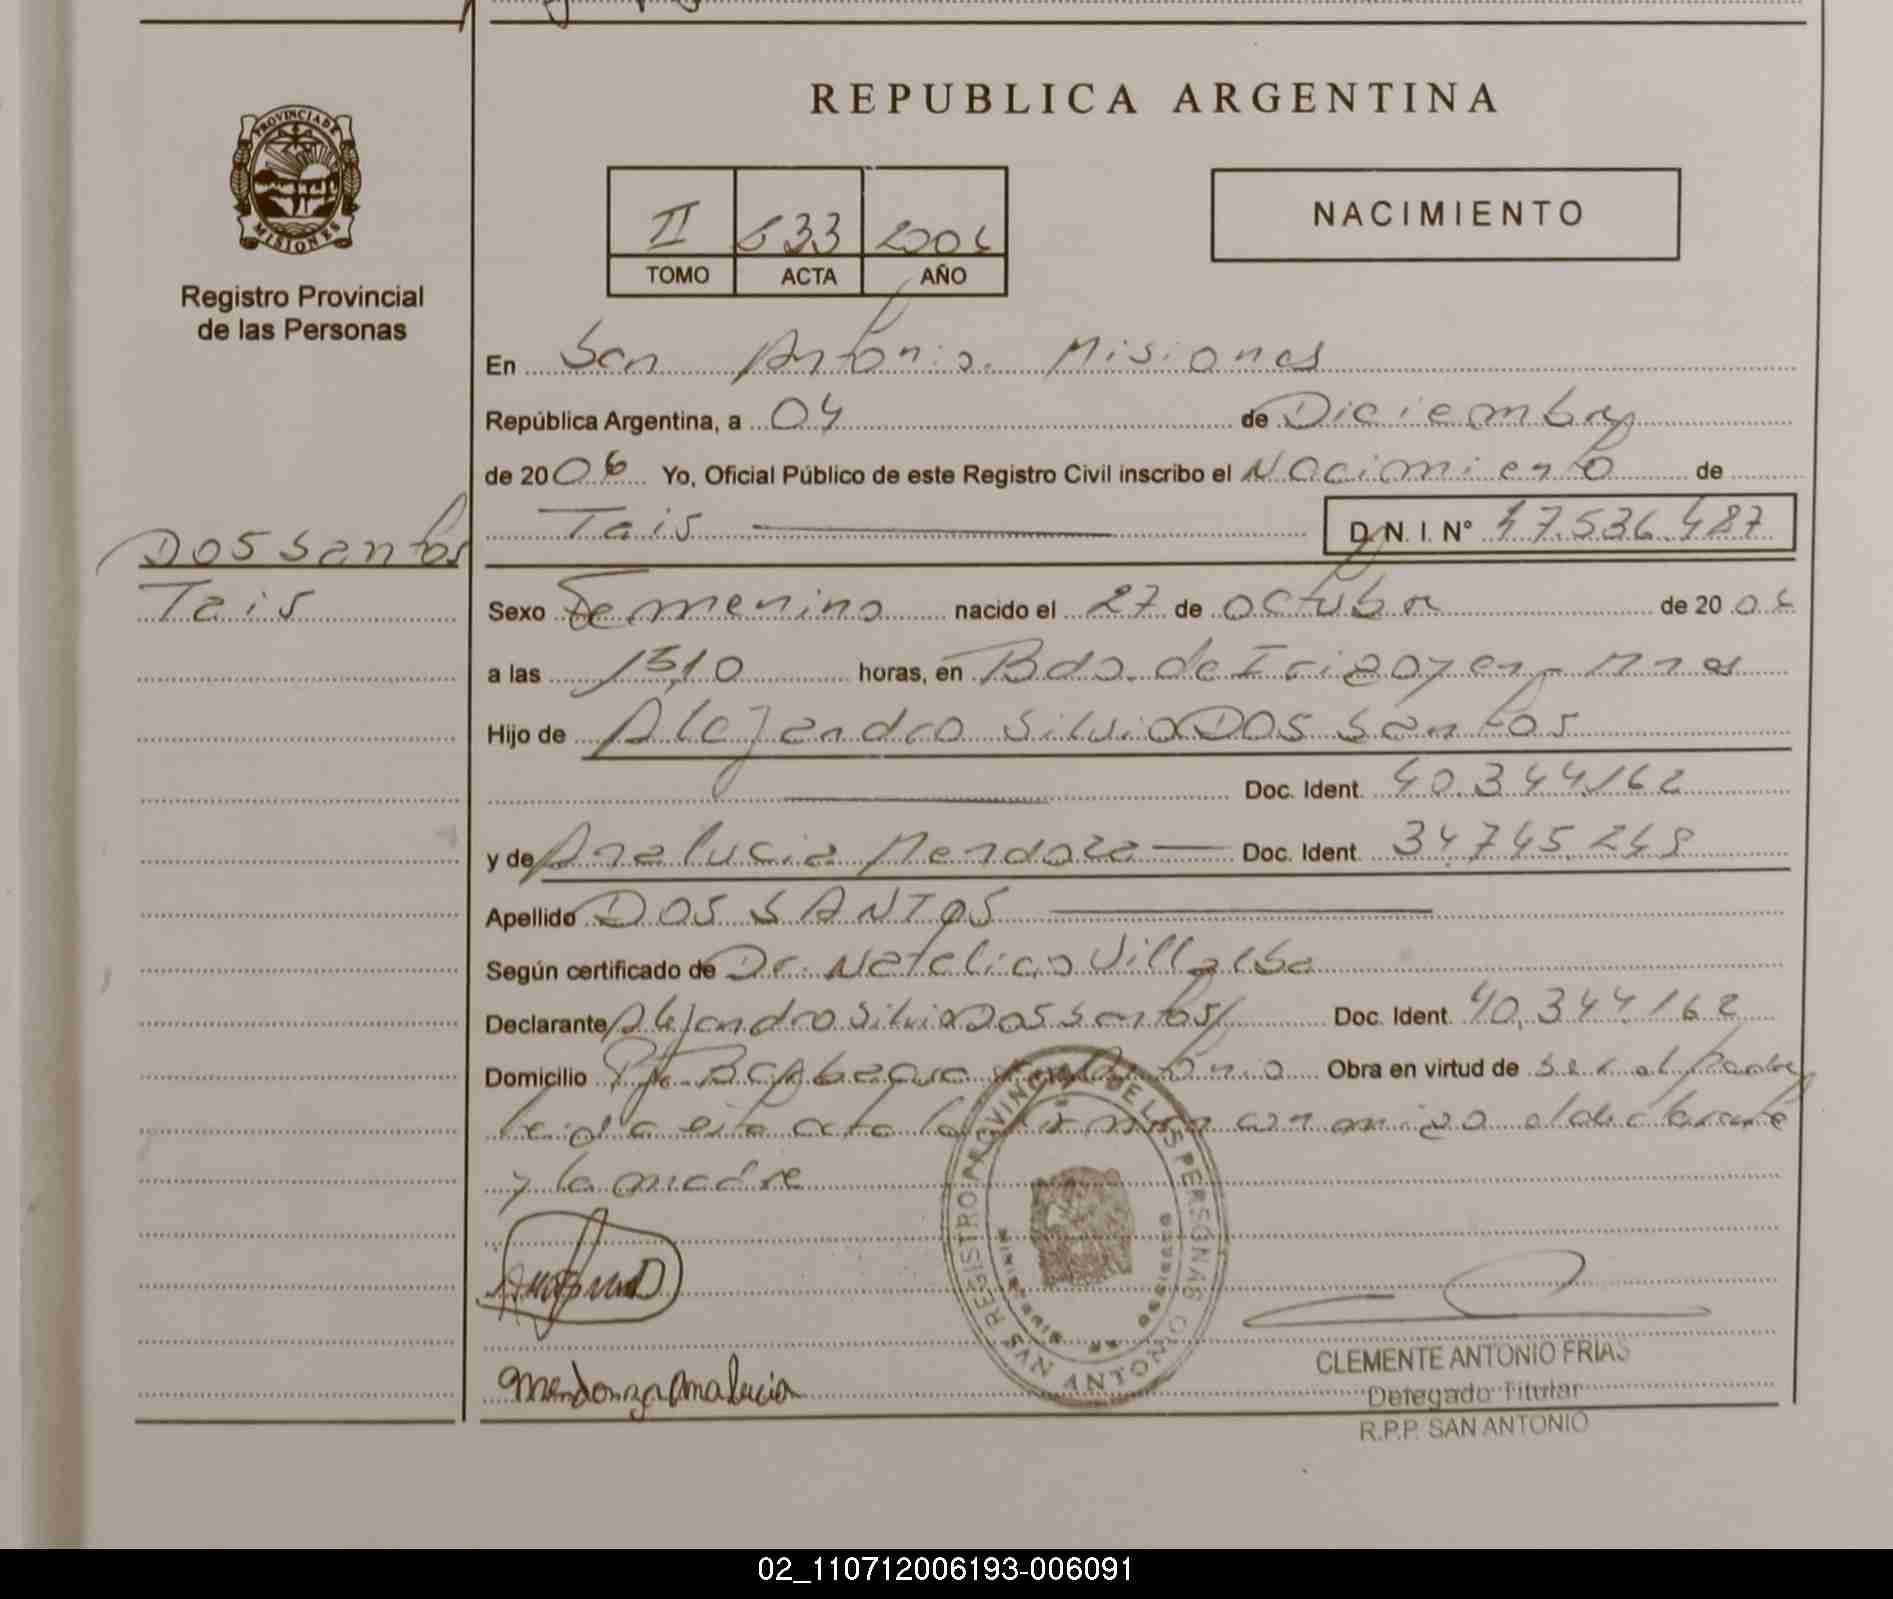 REPUBLICA ARGENTINA
PROVINCIA DE
MISIONES
Registro Provincial
de las Personas
II 633 2006
TOMO ACTA AÑO
NACIMIENTO
En San Antonio. Misiones
República Argentina, a 04 de Diciembre
de 2006 Yo, Oficial Público de este Registro Civil inscribo el Nacimiento de
Tais D. N. I. N° 47.536.487
Dos Santos
Tais
Sexo Femenino nacido el 27 de octubre de 2006
a las 13,10 horas, en Bdo. de Irigoyen - Mnes
Hijo de Alejandro Silvio Dos Santos
Doc. Ident. 40.344.162
y de Analucia Mendoza Doc. Ident. 34.745.249
Apellido DOS SANTOS
Según certificado de Dr. Natalicio Villalba
Declarante Alejandro Silvio Dos Santos Doc. Ident. 40.344.162
Domicilio San Antonio Obra en virtud de ser el padre
leida este acta la firman conmigo el declarante
y la madre
REGISTRO PROVINCIAL DE LAS PERSONAS
SAN ANTONIO
MISIONES
Mendonza Analucia
CLEMENTE ANTONIO FRIAS
Delegado Titular
R.P.P. SAN ANTONIO
02_110712006193-006091